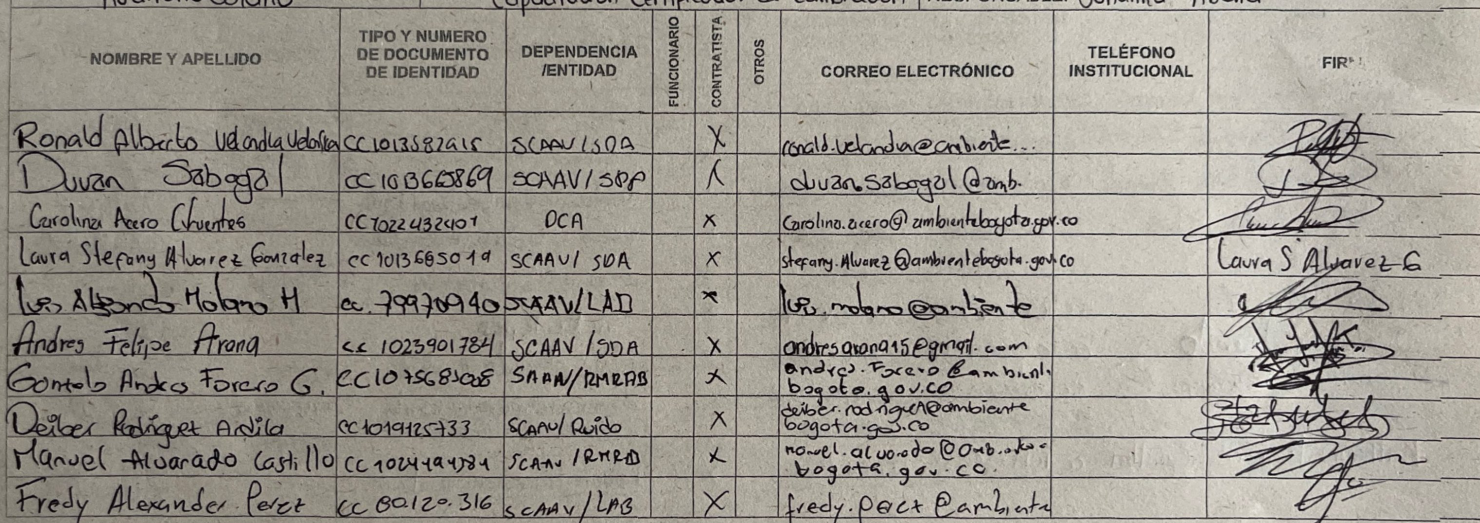 Capacitación
NOMBRE Y APELLIDO TIPO Y NUMERO DE DOCUMENTO DE IDENTIDAD DEPENDENCIA /ENTIDAD FUNCIONARIO CONTRATISTA OTROS CORREO ELECTRÓNICO TELÉFONO INSTITUCIONAL FIR
Ronald Alberto Velandia CC1013582915 SCAAV/SDA X ronald.velandia@ambiente...
Duvan Sabogal SCAAV/ duvan.sabogal@amb.
Carolina Acero Cifuentes CC1022432401 DCA X Carolina.acero@ambientebogota.gov.co
Laura Stefany Alvarez Gonzalez CC 1013665019 SCAAV/ SDA X stefany.Alvarez@ambientebogota.gov.co Laura S Alvarez G
Molano M CC. 79970940 SCAAV/LAB X luis.molano@ambiente
Andres Felipe Arana CC 1023901784 SCAAV/SDA X andresarana15@gmail.com
Andres Forero G. X andres.Forero@ambiente bogota.gov.co
Deiber Rodriguez Ardila CC1019125733 SCAAV/ Ruido X deiber.rodriguez@ambiente bogota.gov.co
Manuel Alvarado Castillo X bogota.gov.co.
Fredy Alexander Perez CC 80.120.316 SCAAV/LAB X fredy.perez@ambiente